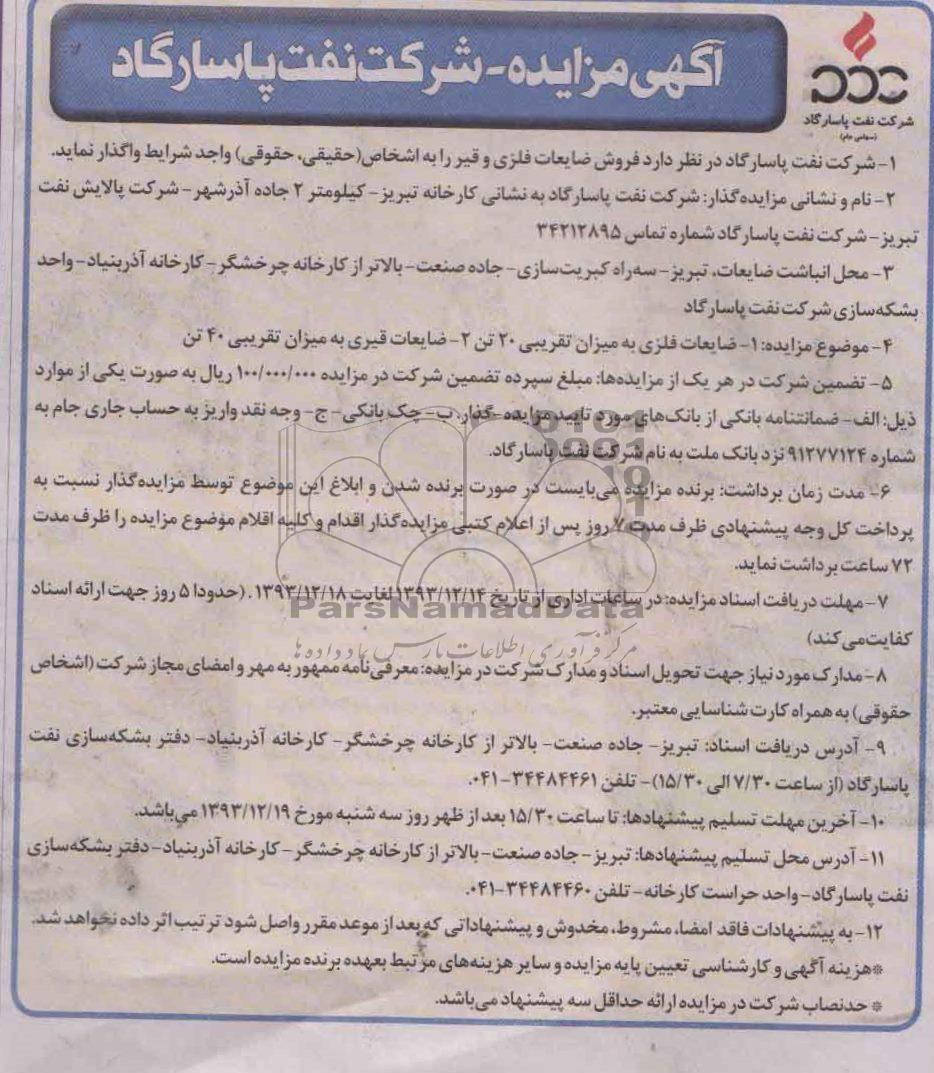 آگهی مزایده - شرکت نفت پاسارگاد
شرکت نفت پاسارگاد
(سهامی عام)
۱- شرکت نفت پاسارگاد در نظر دارد فروش ضایعات فلزی و قیر را به اشخاص(حقیقی، حقوقی) واجد شرایط واگذار نماید.
۲- نام و نشانی مزایده‌گذار: شرکت نفت پاسارگاد به نشانی کارخانه تبریز- کیلومتر ۲ جاده آذرشهر- شرکت پالایش نفت
تبریز- شرکت نفت پاسارگاد شماره تماس ۳۴۲۱۲۸۹۵
۳- محل انباشت ضایعات، تبریز- سه‌راه کبریت‌سازی- جاده صنعت- بالاتر از کارخانه چرخشگر- کارخانه آذربنیاد- واحد
بشکه‌سازی شرکت نفت پاسارگاد
۴- موضوع مزایده: ۱- ضایعات فلزی به میزان تقریبی ۲۰ تن ۲- ضایعات قیری به میزان تقریبی ۴۰ تن
۵- تضمین شرکت در هر یک از مزایده‌ها: مبلغ سپرده تضمین شرکت در مزایده ۱۰۰/۰۰۰/۰۰۰ ریال به صورت یکی از موارد
ذیل: الف- ضمانتنامه بانکی از بانک‌های مورد تایید مزایده-گذار. ب- چک بانکی- ج- وجه نقد واریز به حساب جاری جام به
شماره ۹۱۲۷۷۱۲۴ نزد بانک ملت به نام شرکت نفت پاسارگاد.
۶- مدت زمان برداشت: برنده مزایده می‌بایست در صورت برنده شدن و ابلاغ این موضوع توسط مزایده‌گذار نسبت به
پرداخت کل وجه پیشنهادی ظرف مدت ۷ روز پس از اعلام کتبی مزایده‌گذار اقدام و کلیه اقلام موضوع مزایده را ظرف مدت
۷۲ ساعت برداشت نماید.
۷- مهلت دریافت اسناد مزایده: در ساعات اداری از تاریخ ۱۳۹۳/۱۲/۱۴ لغایت ۱۳۹۳/۱۲/۱۸. (حدودا ۵ روز جهت ارائه اسناد
کفایت می‌کند)
ParsNamadData
مرکز فرآوری اطلاعات پارس نماد داده‌ها
۸- مدارک مورد نیاز جهت تحویل اسناد و مدارک شرکت در مزایده: معرفی‌نامه ممهور به مهر و امضای مجاز شرکت (اشخاص
حقوقی) به همراه کارت شناسایی معتبر.
۹- آدرس دریافت اسناد: تبریز- جاده صنعت- بالاتر از کارخانه چرخشگر- کارخانه آذربنیاد- دفتر بشکه‌سازی نفت
پاسارگاد (از ساعت ۷/۳۰ الی ۱۵/۳۰)- تلفن ۳۴۴۸۴۴۶۱-۰۴۱.
۱۰- آخرین مهلت تسلیم پیشنهادها: تا ساعت ۱۵/۳۰ بعد از ظهر روز سه شنبه مورخ ۱۳۹۳/۱۲/۱۹ می‌باشد.
۱۱- آدرس محل تسلیم پیشنهادها: تبریز- جاده صنعت- بالاتر از کارخانه چرخشگر- کارخانه آذربنیاد- دفتر بشکه‌سازی
نفت پاسارگاد- واحد حراست کارخانه- تلفن ۳۴۴۸۴۴۶۰-۰۴۱.
۱۲- به پیشنهادات فاقد امضا، مشروط، مخدوش و پیشنهاداتی که بعد از موعد مقرر واصل شود ترتیب اثر داده نخواهد شد.
*هزینه آگهی و کارشناسی تعیین پایه مزایده و سایر هزینه‌های مرتبط بعهده برنده مزایده است.
* حدنصاب شرکت در مزایده ارائه حداقل سه پیشنهاد می‌باشد.